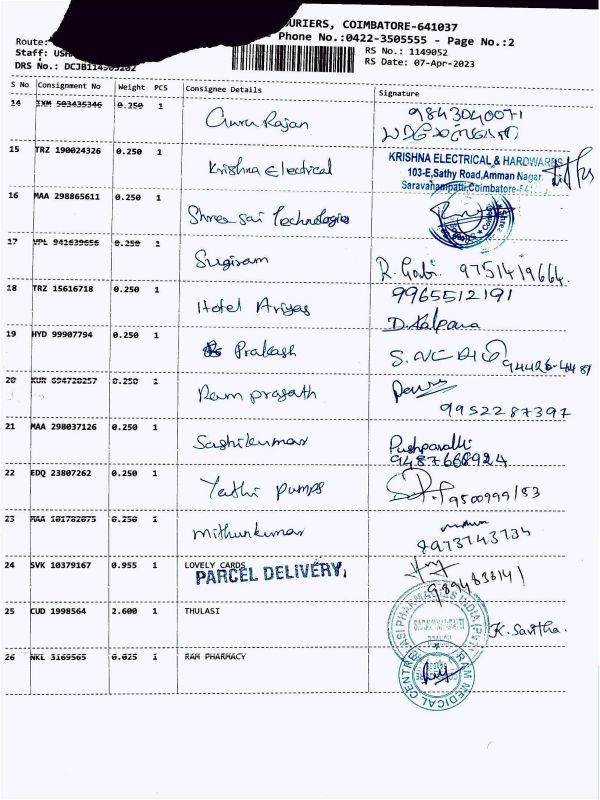 OURIERS, COIMBATORE-641037
Phone No.:0422-3505555 - Page No.:2
Route:
Staff:
RS No.: 1149052
RS Date: 07-Apr-2023
DRS No.:
S No Consignment No Weight PCS Consignee Details Signature
14 IXM 503435346 0.250 1 Guru Rajan 9843040071
15 TRZ 190024326 0.250 1 Krishna Electrical KRISHNA ELECTRICAL & HARDWARES
103-E, Sathy Road, Amman Nagar,
Saravanampatti, Coimbatore-641
16 MAA 298865611 0.250 1 Shree Sai Technologies
17 VPL 941639656 0.250 1 Sugiram R. Gobi. 9751419664
18 TRZ 15616718 0.250 1 Hotel Ariyas 9965512191
D. Kalpana
19 HYD 99907794 0.250 1 Prakash
20 KUR 694728257 0.250 1 Ram prasath
9952287397
21 MAA 298037126 0.250 1 Sashikumar Pushpavalli
9487668924
22 EDQ 23807262 0.250 1 Yathi Pumps
23 MAA 101782075 0.250 1 Mithunkumar
8973743734
24 SVK 10379167 0.955 1 LOVELY CARDS
PARCEL DELIVERY,
25 CUD 1998564 2.600 1 THULASI K. Savitha.
26 NKL 3169565 0.025 1 RAM PHARMACY
RAM MEDICAL CENTRE